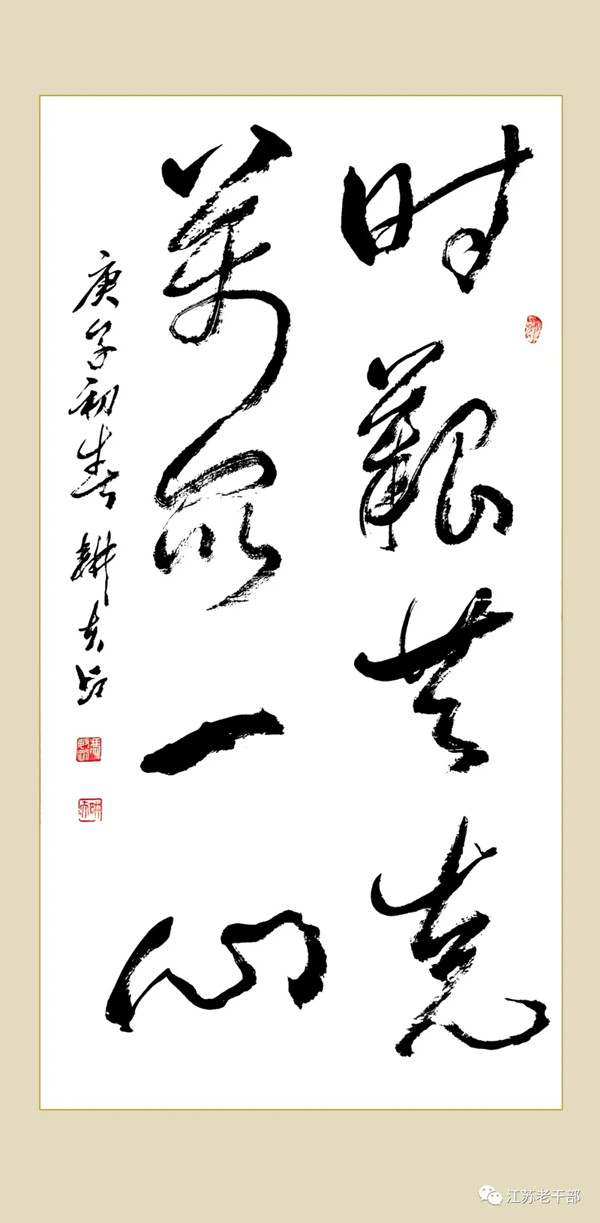 时艱共克
萬众一心
庚子初春 耕夫书
江苏老干部